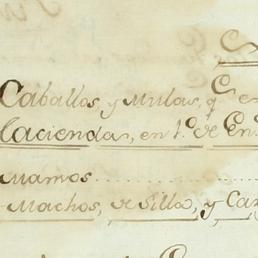 Caballos, y Mulas, q.e en
Haciendas, en 1.o de En.
Mamos
Machos, de Silla, y Car